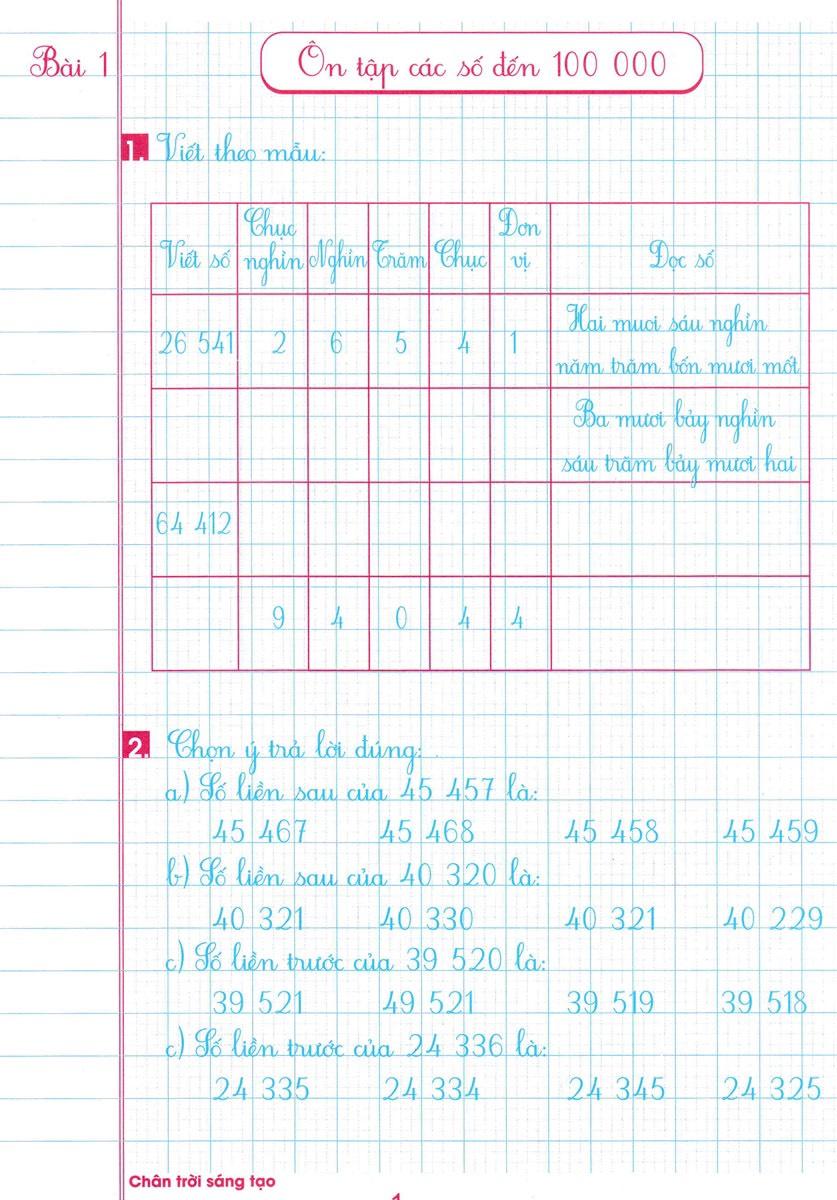 Bài 1
Ôn tập các số đến 100 000
1. Viết theo mẫu:
Viết số Chục nghìn Nghìn Trăm Chục Đơn vị Đọc số
26 541 2 6 5 4 1 Hai mươi sáu nghìn
năm trăm bốn mươi mốt
Ba mươi bảy nghìn
sáu trăm bảy mươi hai
64 412
9 4 0 4 4
2. Chọn ý trả lời đúng:
a) Số liền sau của 45 457 là:
45 467 45 468 45 458 45 459
b) Số liền sau của 40 320 là:
40 321 40 330 40 321 40 229
c) Số liền trước của 39 520 là:
39 521 49 521 39 519 39 518
c) Số liền trước của 24 336 là:
24 335 24 334 24 345 24 325
Chân trời sáng tạo
1